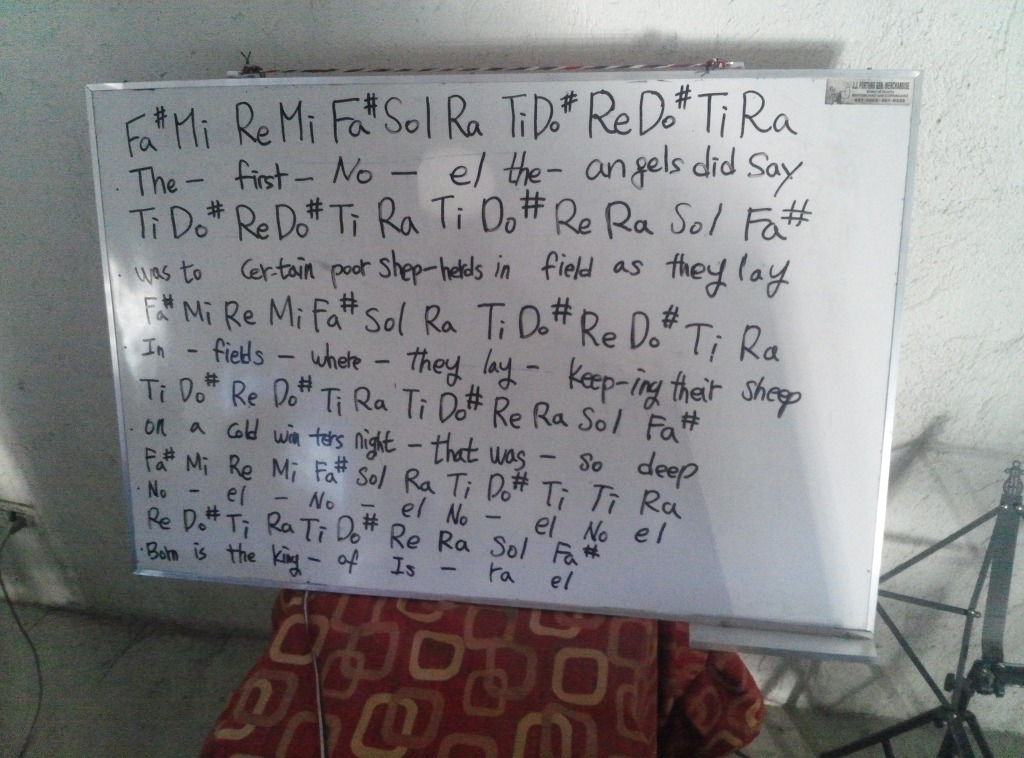 Fa# Mi Re Mi Fa# Sol Ra Ti Do# Re Do# Ti Ra
The - first - No - el the - angels did Say
Ti Do# Re Do# Ti Ra Ti Do# Re Ra Sol Fa#
was to Cer-tain poor Shep-herds in field as they lay
Fa# Mi Re Mi Fa# Sol Ra Ti Do# Re Do# Ti Ra
In - fields - where - they lay - keep-ing their sheep
Ti Do# Re Do# Ti Ra Ti Do# Re Ra Sol Fa#
on a cold win ters night - that was - so deep
Fa# Mi Re Mi Fa# Sol Ra Ti Do# Ti Ti Ra
No - el - No - el No - el No el
Re Do# Ti Ra Ti Do# Re Ra Sol Fa#
Born is the king - of Is - ra el